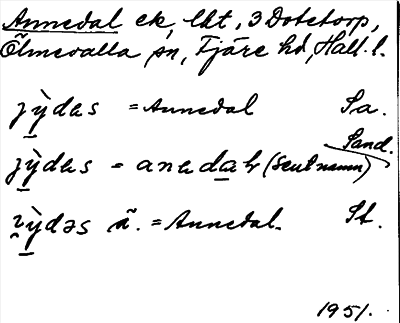 Annedal ek, lht, 3 Dotetorp,
Ölmevalla sn, Fjäre hd, Hall. l.
jỳdas = Annedal Sa.
Sand.
jỳdas = anadah (sent namn)
ỳdəs ä. = Annedal. St.
1951.